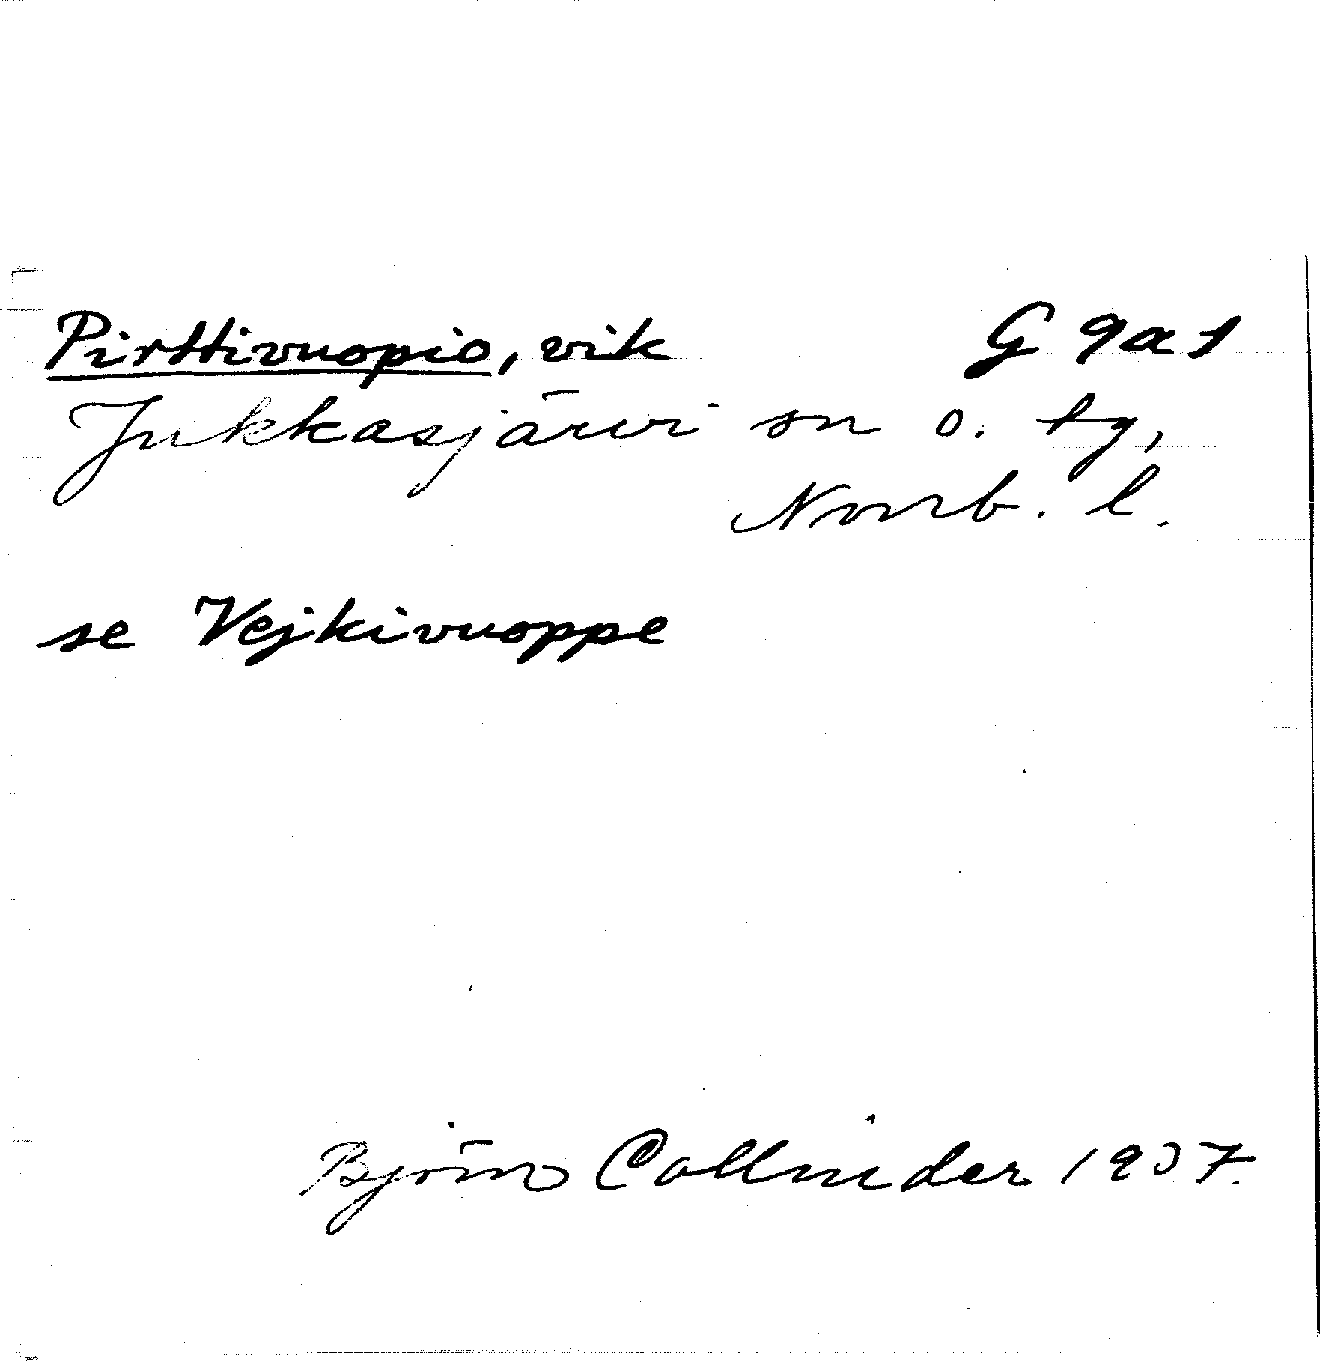 Pirttivuopio, vik G 9a1
Jukkasjärvi sn o. tg,
Norrb. l.
se Vejkivuoppe
Björn Collinder 1937.